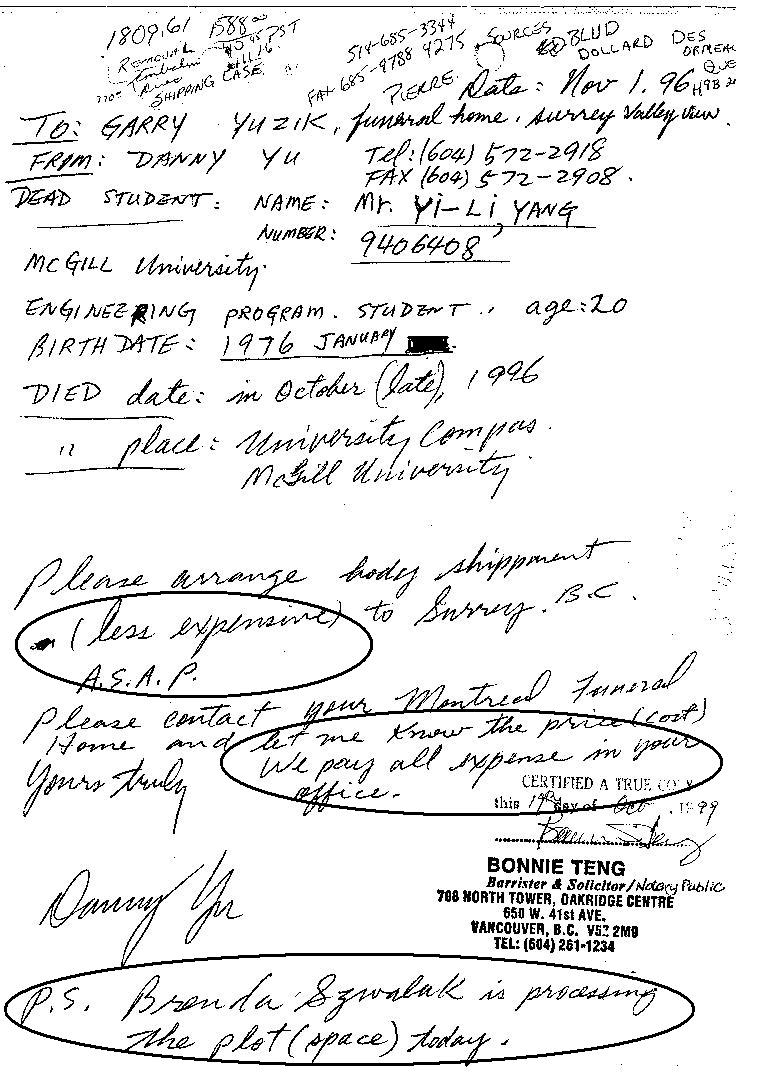 1809.61 1588.00
REMOVAL PST
SHIPPING CASE
514-685-3344
FAX 685-9788 4275
PIERRE
SOURCES BLUD
DOLLARD DES
ORMEA
QUE
H9B 2
Date: Nov 1, 96
TO: GARRY YUZIK, funeral home, surrey Valley view.
FROM: DANNY YU Tel: (604) 572-2918
FAX (604) 572-2908.
DEAD STUDENT: NAME: Mr. Yi-Li YANG
NUMBER: 9406408
MCGILL University.
ENGINEERING PROGRAM. STUDENT., age: 20
BIRTH DATE: 1976 JANUARY
DIED date: in October (late), 1996
" place: University Compas.
McGill University.
Please arrange body shippment
(less expensive) to Surrey. B.C.
A.S.A.P.
Please contact your Montreal Funeral
Home and let me know the price (cost)
We pay all expense in your
office.
Yours truly
CERTIFIED A TRUE COPY
this 19 day of Oct. 1999
BONNIE TENG
Barrister & Solicitor/Notary Public
708 NORTH TOWER, OAKRIDGE CENTRE
650 W. 41st AVE.
VANCOUVER, B.C. V5Z 2M9
TEL: (604) 261-1234
Danny Yu
P.S. Brenda Szwalak is processing
the plot (space) today.